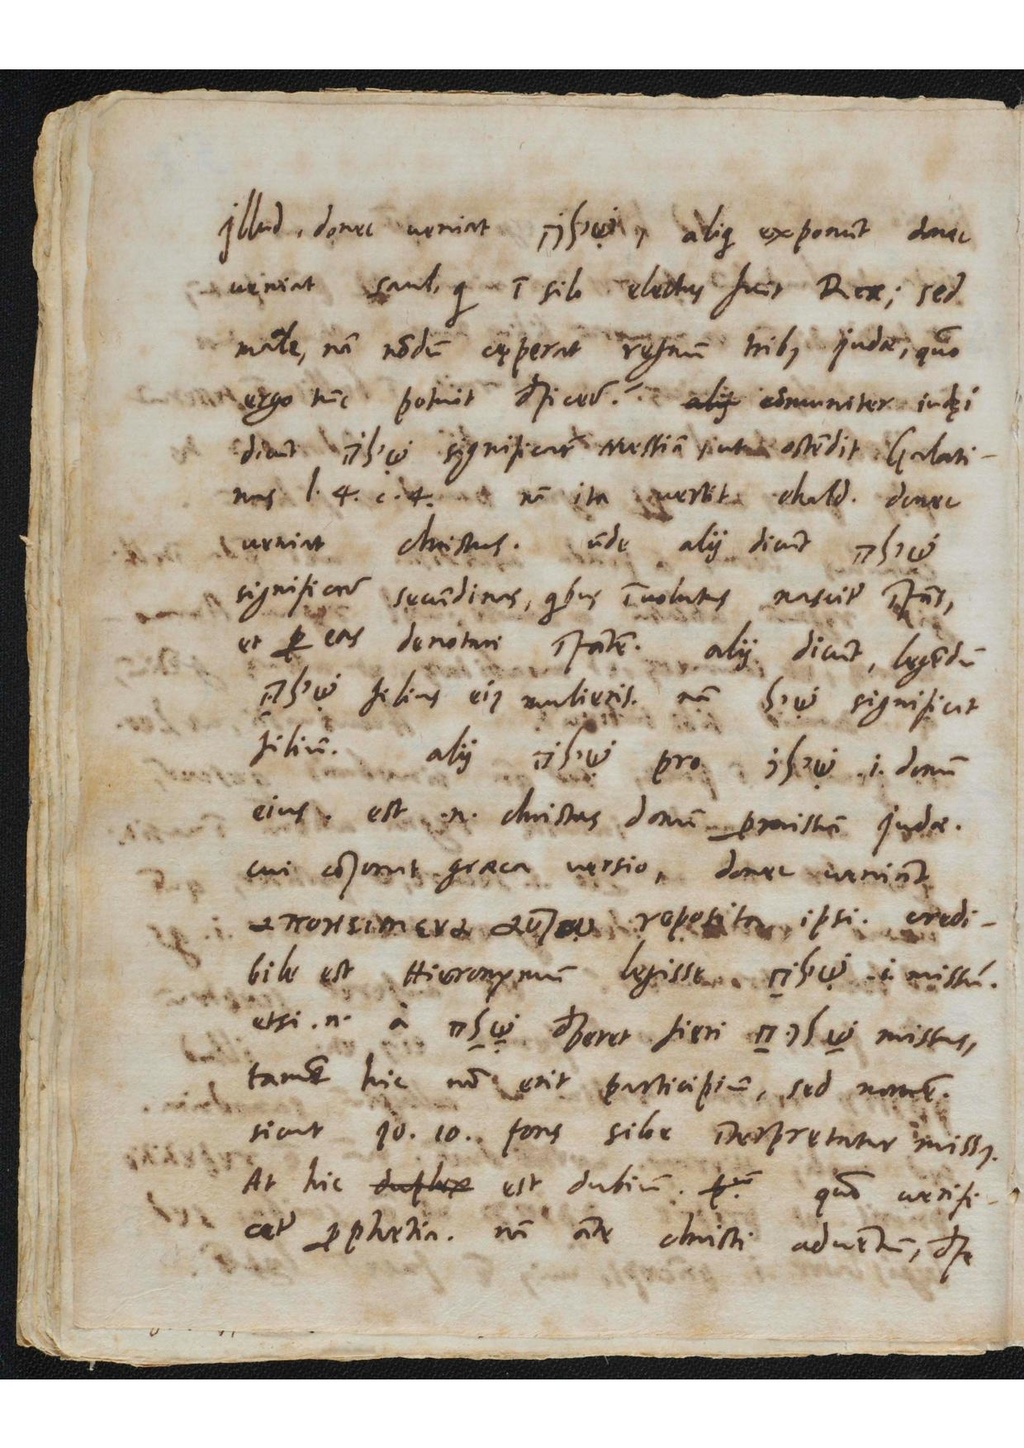 jllud. donec ueniat שִׁילֹה, aliq exponūt donec
ueniat saul, q ī silo electus fuit Rex; sed
male, nā nōdū cęperat regnū tribꝰ judæ, quō
ergo tūc potuit dficere? alij cōmuniter iudęi
dicūt שִׁילֹה significare Messiā, ut ostēdit Galati-
nus l. 4. c. 4. nā ita uertit chald. donec
ueniat christus. ūde alij dicūt שִׁילֹה
significare secūdinas, qbus īuolutus nascit īfās,
et ꝑ eas denotari īfātē. alij dicūt, legēdū
שִׁילֹהּ filius eiꝰ mulieris. nā שִׁיל significat
filiū. alij שִׁילֹה pro שִׁילוֹ .i. donū
eius. est .n. christus donū pmissū judæ.
cui cōsonat græca uersio, donec ueniāt
αποκειμενα αυτω reposita ipsi. credi-
bile est Hieronymū legisse שִׁילֹחַ .i. missū.
etsi .n. à שָׁלַח dberet fieri שָׁלוּחַ missus,
tamē hic nō erit participiū, sed nomē.
sicut jo. 10. fons siloe īterpretatur missꝰ.
At hic duplex est dubiū. quō uerifi-
cat ꝓphetia. nā āte christi aduētū, dfe